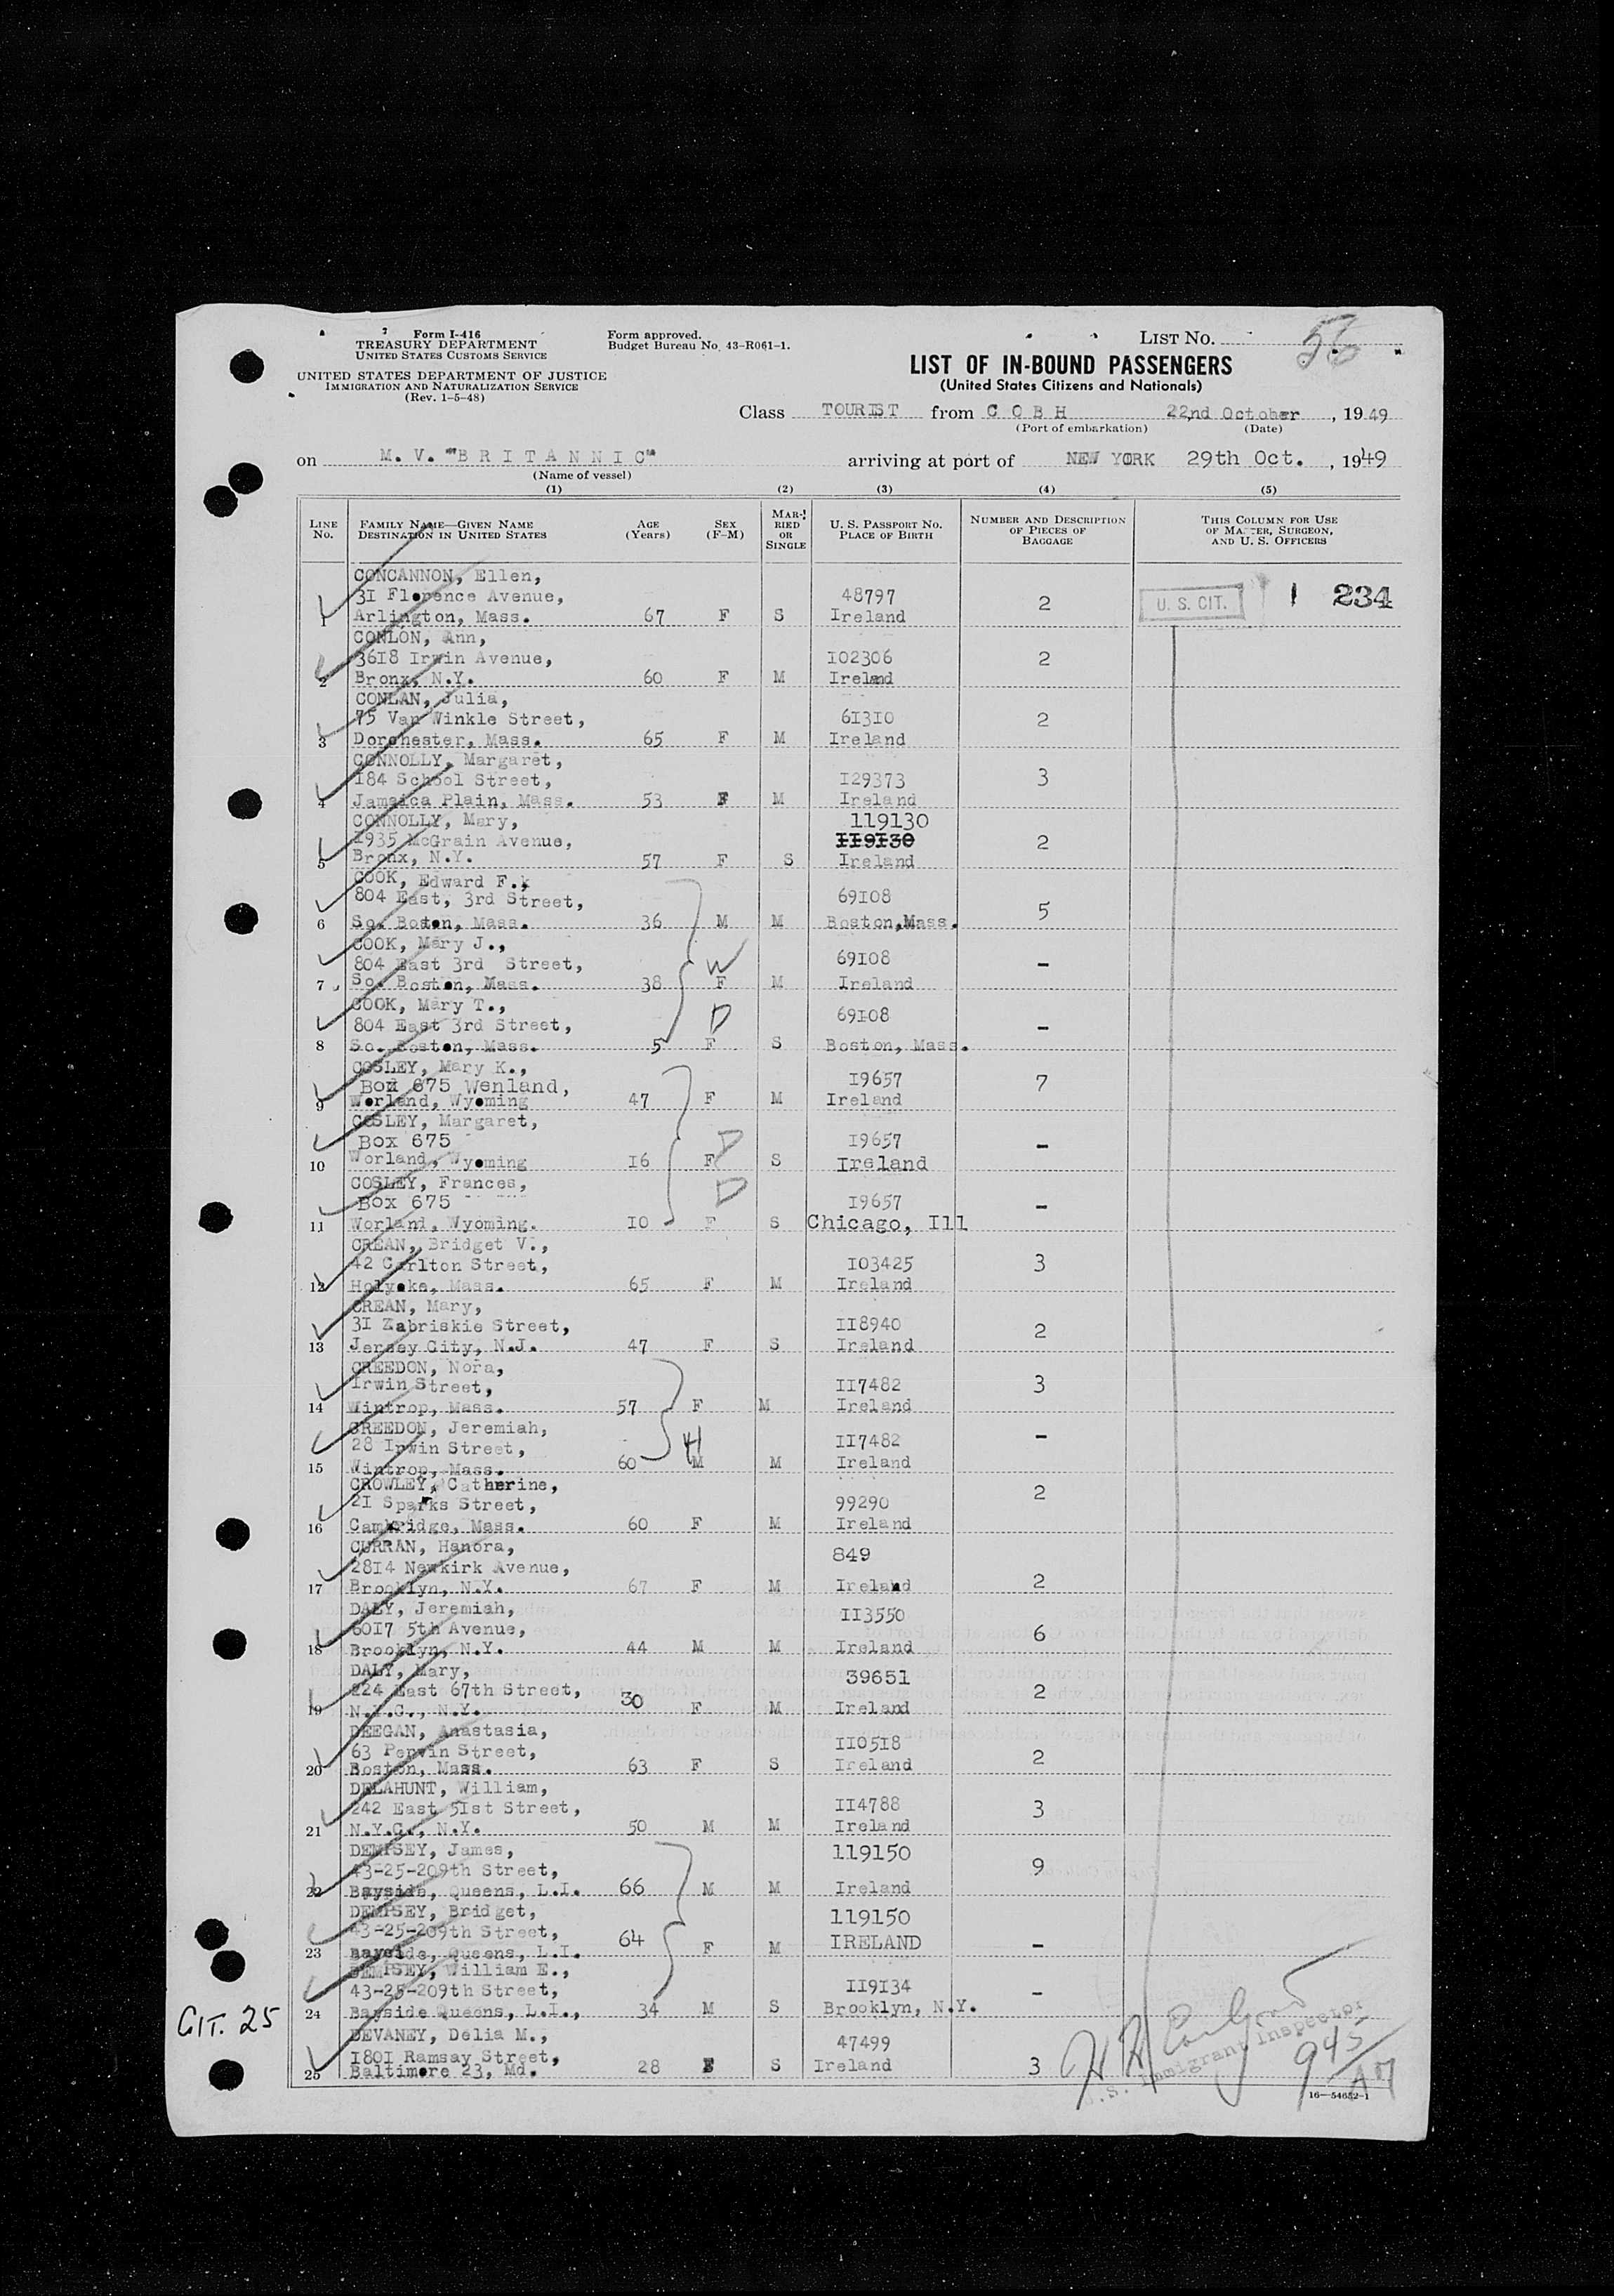 Form I-416
TREASURY DEPARTMENT
UNITED STATES CUSTOMS SERVICE
UNITED STATES DEPARTMENT OF JUSTICE
IMMIGRATION AND NATURALIZATION SERVICE
(Rev. 1-5-48)
Form approved.
Budget Bureau No. 43-R061-1.
LIST No. 56
LIST OF IN-BOUND PASSENGERS
(United States Citizens and Nationals)
Class TOURIST from C O B H 22nd October, 1949
(Port of embarkation) (Date)
on M. V. "B R I T A N N I C" arriving at port of NEW YORK 29th Oct., 1949
(Name of vessel)
(1) (2) (3) (4) (5)
LINE No.
FAMILY NAME—GIVEN NAME
DESTINATION IN UNITED STATES
AGE (Years)
SEX (F-M)
MARRIED OR SINGLE
U. S. PASSPORT NO.
PLACE OF BIRTH
NUMBER AND DESCRIPTION OF PIECES OF BAGGAGE
THIS COLUMN FOR USE OF MASTER, SURGEON, AND U. S. OFFICERS
CONCANNON, Ellen,
31 Florence Avenue, 48797 2 U. S. CIT. 1 234
1 Arlington, Mass. 67 F S Ireland
CONLON, Ann,
3618 Irwin Avenue, 102306 2
2 Bronx, N.Y. 60 F M Ireland
CONLAN, Julia,
75 Van Winkle Street, 61310 2
3 Dorchester, Mass. 65 F M Ireland
CONNOLLY, Margaret,
184 School Street, 129373 3
4 Jamaica Plain, Mass. 53 F M Ireland
CONNOLLY, Mary, 119130
1935 McGrain Avenue, 119130 2
5 Bronx, N.Y. 57 F S Ireland
COOK, Edward F.,
804 East, 3rd Street, 69108 5
6 So. Boston, Mass. 36 M M Boston, Mass.
COOK, Mary J.,
804 East 3rd Street, W 69108 -
7 So. Boston, Mass. 38 F M Ireland
COOK, Mary T.,
804 East 3rd Street, D 69108 -
8 So. Boston, Mass. 5 F S Boston, Mass.
COSLEY, Mary K.,
Box 675 Wenland, 19657 7
9 Worland, Wyoming 47 F M Ireland
COSLEY, Margaret,
Box 675 D 19657 -
10 Worland, Wyoming 16 F S Ireland
COSLEY, Frances,
Box 675 D 19657 -
11 Worland, Wyoming. 10 F S Chicago, Ill
CREAN, Bridget V.,
42 Carlton Street, 103425 3
12 Holyoke, Mass. 65 F M Ireland
CREAN, Mary,
31 Zabriskie Street, 118940 2
13 Jersey City, N.J. 47 F S Ireland
CREEDON, Nora,
Irwin Street, 117482 3
14 Wintrop, Mass. 57 F M Ireland
CREEDON, Jeremiah,
28 Irwin Street, H 117482 -
15 Wintrop, Mass. 60 M M Ireland
CROWLEY, Catherine,
21 Sparks Street, 99290 2
16 Cambridge, Mass. 60 F M Ireland
CURRAN, Hanora,
2814 Newkirk Avenue, 849
17 Brooklyn, N.Y. 67 F M Ireland 2
DALY, Jeremiah,
6017 5th Avenue, 113550 6
18 Brooklyn, N.Y. 44 M M Ireland
DALY, Mary,
224 East 67th Street, 39651 2
19 N.Y.C., N.Y. 30 F M Ireland
DEEGAN, Anastasia,
63 Pervin Street, 110518 2
20 Boston, Mass. 63 F S Ireland
DELAHUNT, William,
242 East 51st Street, 114788 3
21 N.Y.C., N.Y. 50 M M Ireland
DEMPSEY, James, 119150
43-25-209th Street, 9
22 Bayside, Queens, L.I. 66 M M Ireland
DEMPSEY, Bridget, 119150
43-25-209th Street, 64 IRELAND
23 Bayside, Queens, L.I. F M -
DEMPSEY, William E.,
43-25-209th Street, 119134 -
24 Bayside Queens, L.I., 34 M S Brooklyn, N.Y.
CIT. 25
DEVANEY, Delia M.,
1801 Ramsay Street, 47499
25 Baltimore 23, Md. 28 F S Ireland 3
U.S. Immigrant Inspector
945 AM
16—54652-1